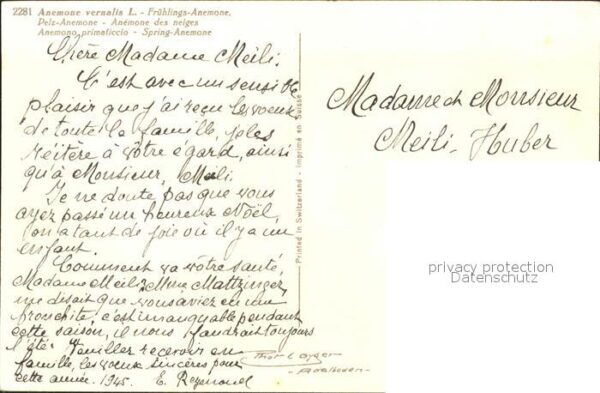 2281 Anemone vernalis L. - Frühlings-Anemone.
Pelz-Anemone - Anémone des neiges
Anemono primaticcio - Spring-Anemone
Chère Madame Meili.
C'est avec un sensible
plaisir que j'ai reçu les voeux
de toute la famille, je les
réitère à votre égard, ainsi
qu'à Monsieur, Meili.
Je ne doute pas que vous
ayez passé un heureux Noël,
on a tant de joie où il y a un
enfant.
Comment va votre santé,
Madame Meili, Mme Mattzinger
me disait que vous aviez eu une
bronchite, c'est immanquable pendant
cette saison, il nous faudrait toujours
l'été. Veuillez recevoir en
famille, les voeux sincères pour
cette année. 1945. E. Reymond
Printed in Switzerland - Imprimé en Suisse
Madame et Monsieur
Meili-Huber
privacy protection
Datenschutz
Adelboden-